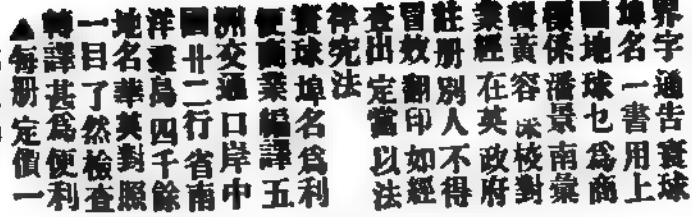 界字通告寰球
埠名一書用上
地球乜爲商
標係潘景南彙
輯黃容校對
業經在英政府
註册別人不得
冒效翻印如經
查出定當以法
律究法
寰球埠名爲利
便商業編譯五
洲交通口岸中
國廿二行省南
洋羣島四千餘
地名華英對照
一目了然檢查
轉譯甚爲便利
▲每册定價一